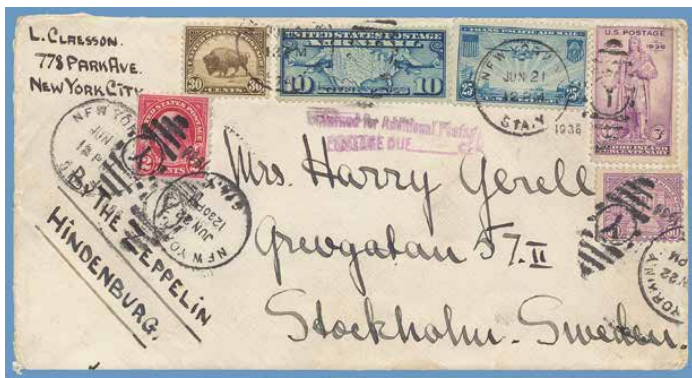 L. Claesson.
778 Park Ave.
New York City
30 CENTS 30
UNITED STATES POSTAGE
AIR MAIL
10 CENTS 10
TRANS-PACIFIC AIR MAIL
25
U.S. POSTAGE
1936
3
NEW YORK
JUN 21
12 PM
STA.Y
1936
Returned for Additional Postage
POSTAGE DUE CTS
UNITED STATES POSTAGE
2 CENTS 2
NEW YORK
JUN
12 PM
NEW YORK
JUN 2
1230PM
STA.Y
By THE ZEPPELIN
HINDENBURG.
Mrs. Harry Gerell
Grevgatan 57. II
Stockholm. Sweden.
22
PM